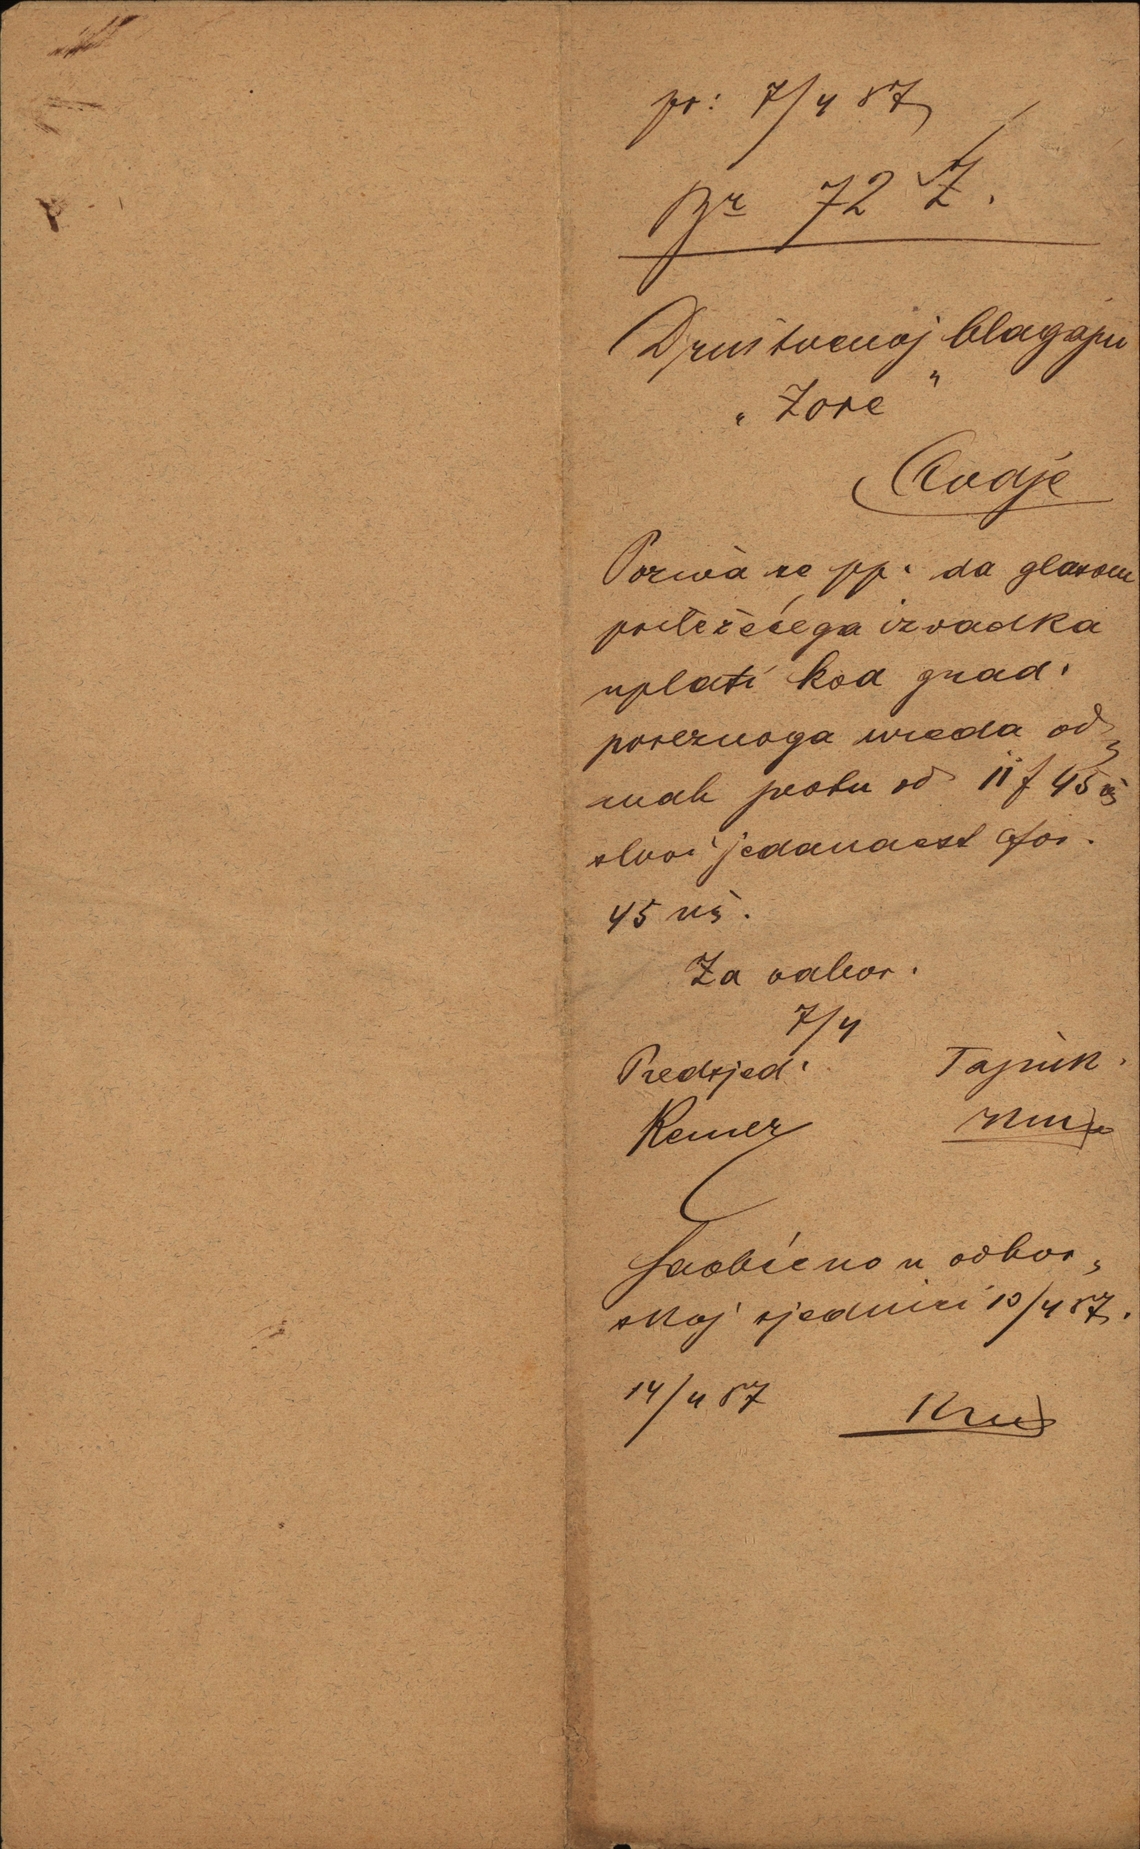 pr: 7/4 87
Br 72 Ž.
Društvenoj blagajni
„Zore"
Ovdje
Poziva se pp. da glasom
priležećega izvadka
uplati kod grad.
poreznoga ureda od„
mah svotu od 11 f 45 nč
slovi jedanaest for.
45 nč.
Za odbor.
7/4
Predsjed. Tajnik.
Remer
Saobćeno u odbor„
skoj sjednici 10/4 87.
14/4 87